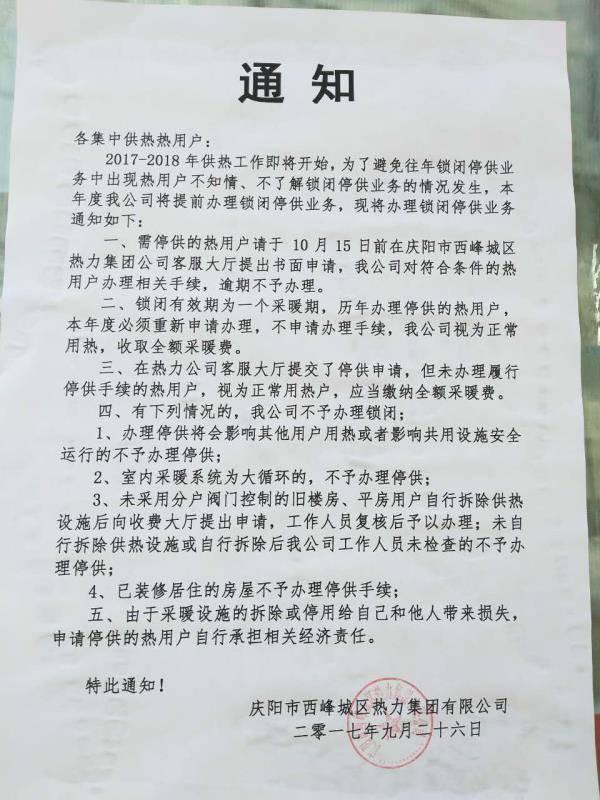 通知
各集中供热热用户：
2017-2018 年供热工作即将开始，为了避免往年锁闭停供业
务中出现热用户不知情、不了解锁闭停供业务的情况发生，本
年度我公司将提前办理锁闭停供业务，现将办理锁闭停供业务
通知如下：
一、需停供的热用户请于 10 月 15 日前在庆阳市西峰城区
热力集团公司客服大厅提出书面申请，我公司对符合条件的热
用户办理相关手续，逾期不予办理。
二、锁闭有效期为一个采暖期，历年办理停供的热用户，
本年度必须重新申请办理，不申请办理手续，我公司视为正常
用热，收取全额采暖费。
三、在热力公司客服大厅提交了停供申请，但未办理履行
停供手续的热用户，视为正常用热户，应当缴纳全额采暖费。
四、有下列情况的，我公司不予办理锁闭；
1、办理停供将会影响其他用户用热或者影响共用设施安全
运行的不予办理停供；
2、室内采暖系统为大循环的，不予办理停供；
3、未采用分户阀门控制的旧楼房、平房用户自行拆除供热
设施后向收费大厅提出申请，工作人员复核后予以办理；未自
行拆除供热设施或自行拆除后我公司工作人员未检查的不予办
理停供；
4、已装修居住的房屋不予办理停供手续；
五、由于采暖设施的拆除或停用给自己和他人带来损失，
申请停供的热用户自行承担相关经济责任。
特此通知！
庆阳市西峰城区热力集团有限公司
二零一七年九月二十六日